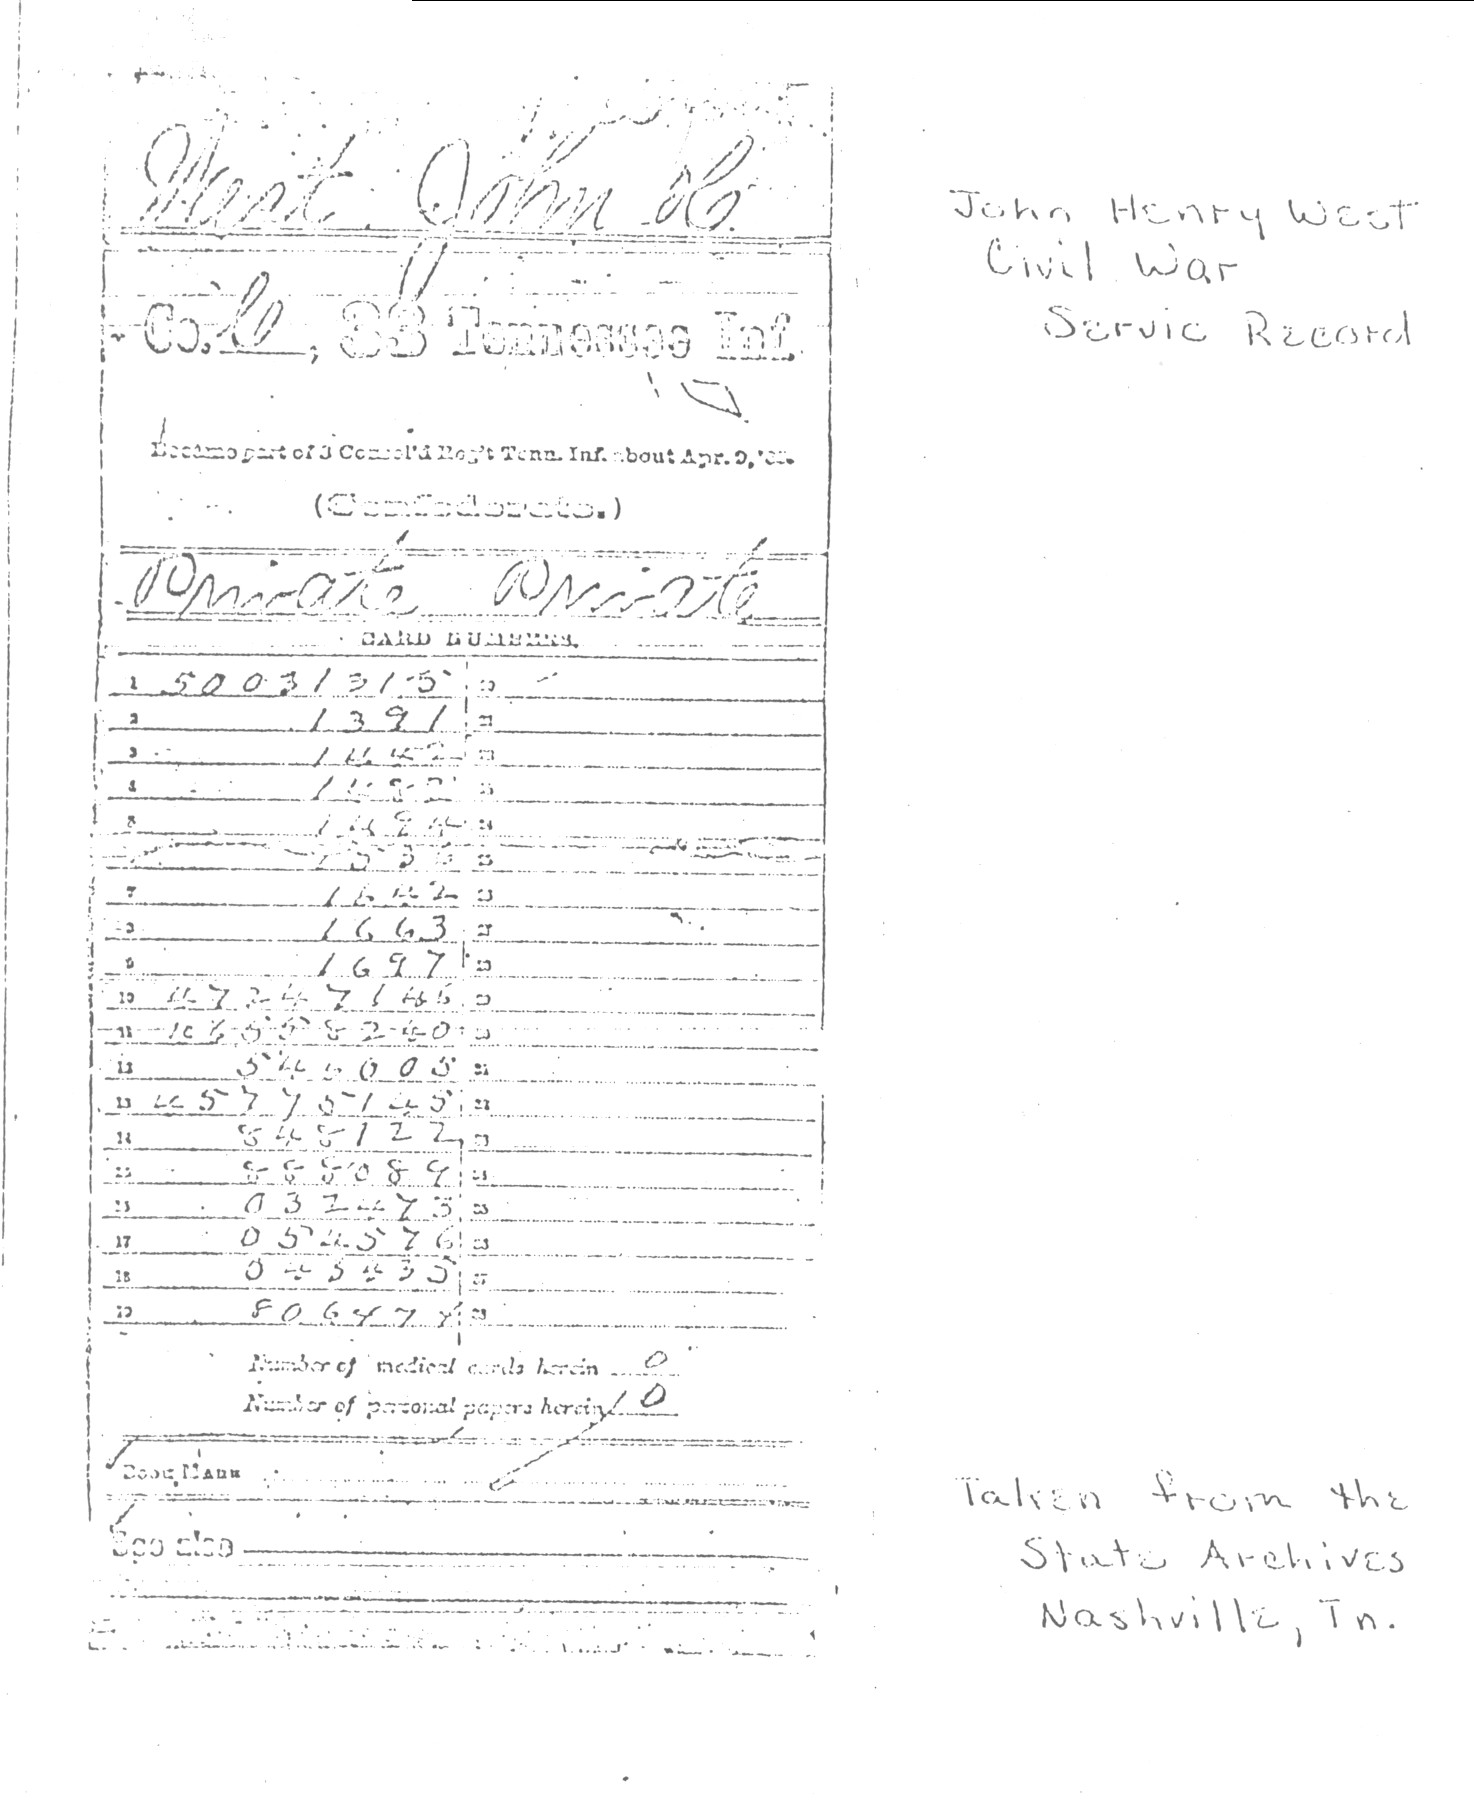 West John H.
Co. , 33 Tennessee Inf.
Became part of 3 Consol'd Reg't Tenn. Inf. about Apr. 9,
(Confederate.)
Private Private
CARD NUMBERS.
1 50031315 20
2 1391 21
3 1442 22
4 1482 23
5 1494 24
25
7 1642 26
8 1663 27
9 1697 28
10 47247146 29
11 30
12 31
13 45775145 32
14 848122 33
15 888089 34
16 032473 35
17 054576 36
18 37
19 38
Number of medical cards herein 0
Number of personal papers herein 0
BOOK MARK
See also
John Henry West
Civil War
Servic Record
Taken from the
State Archives
Nashville, Tn.